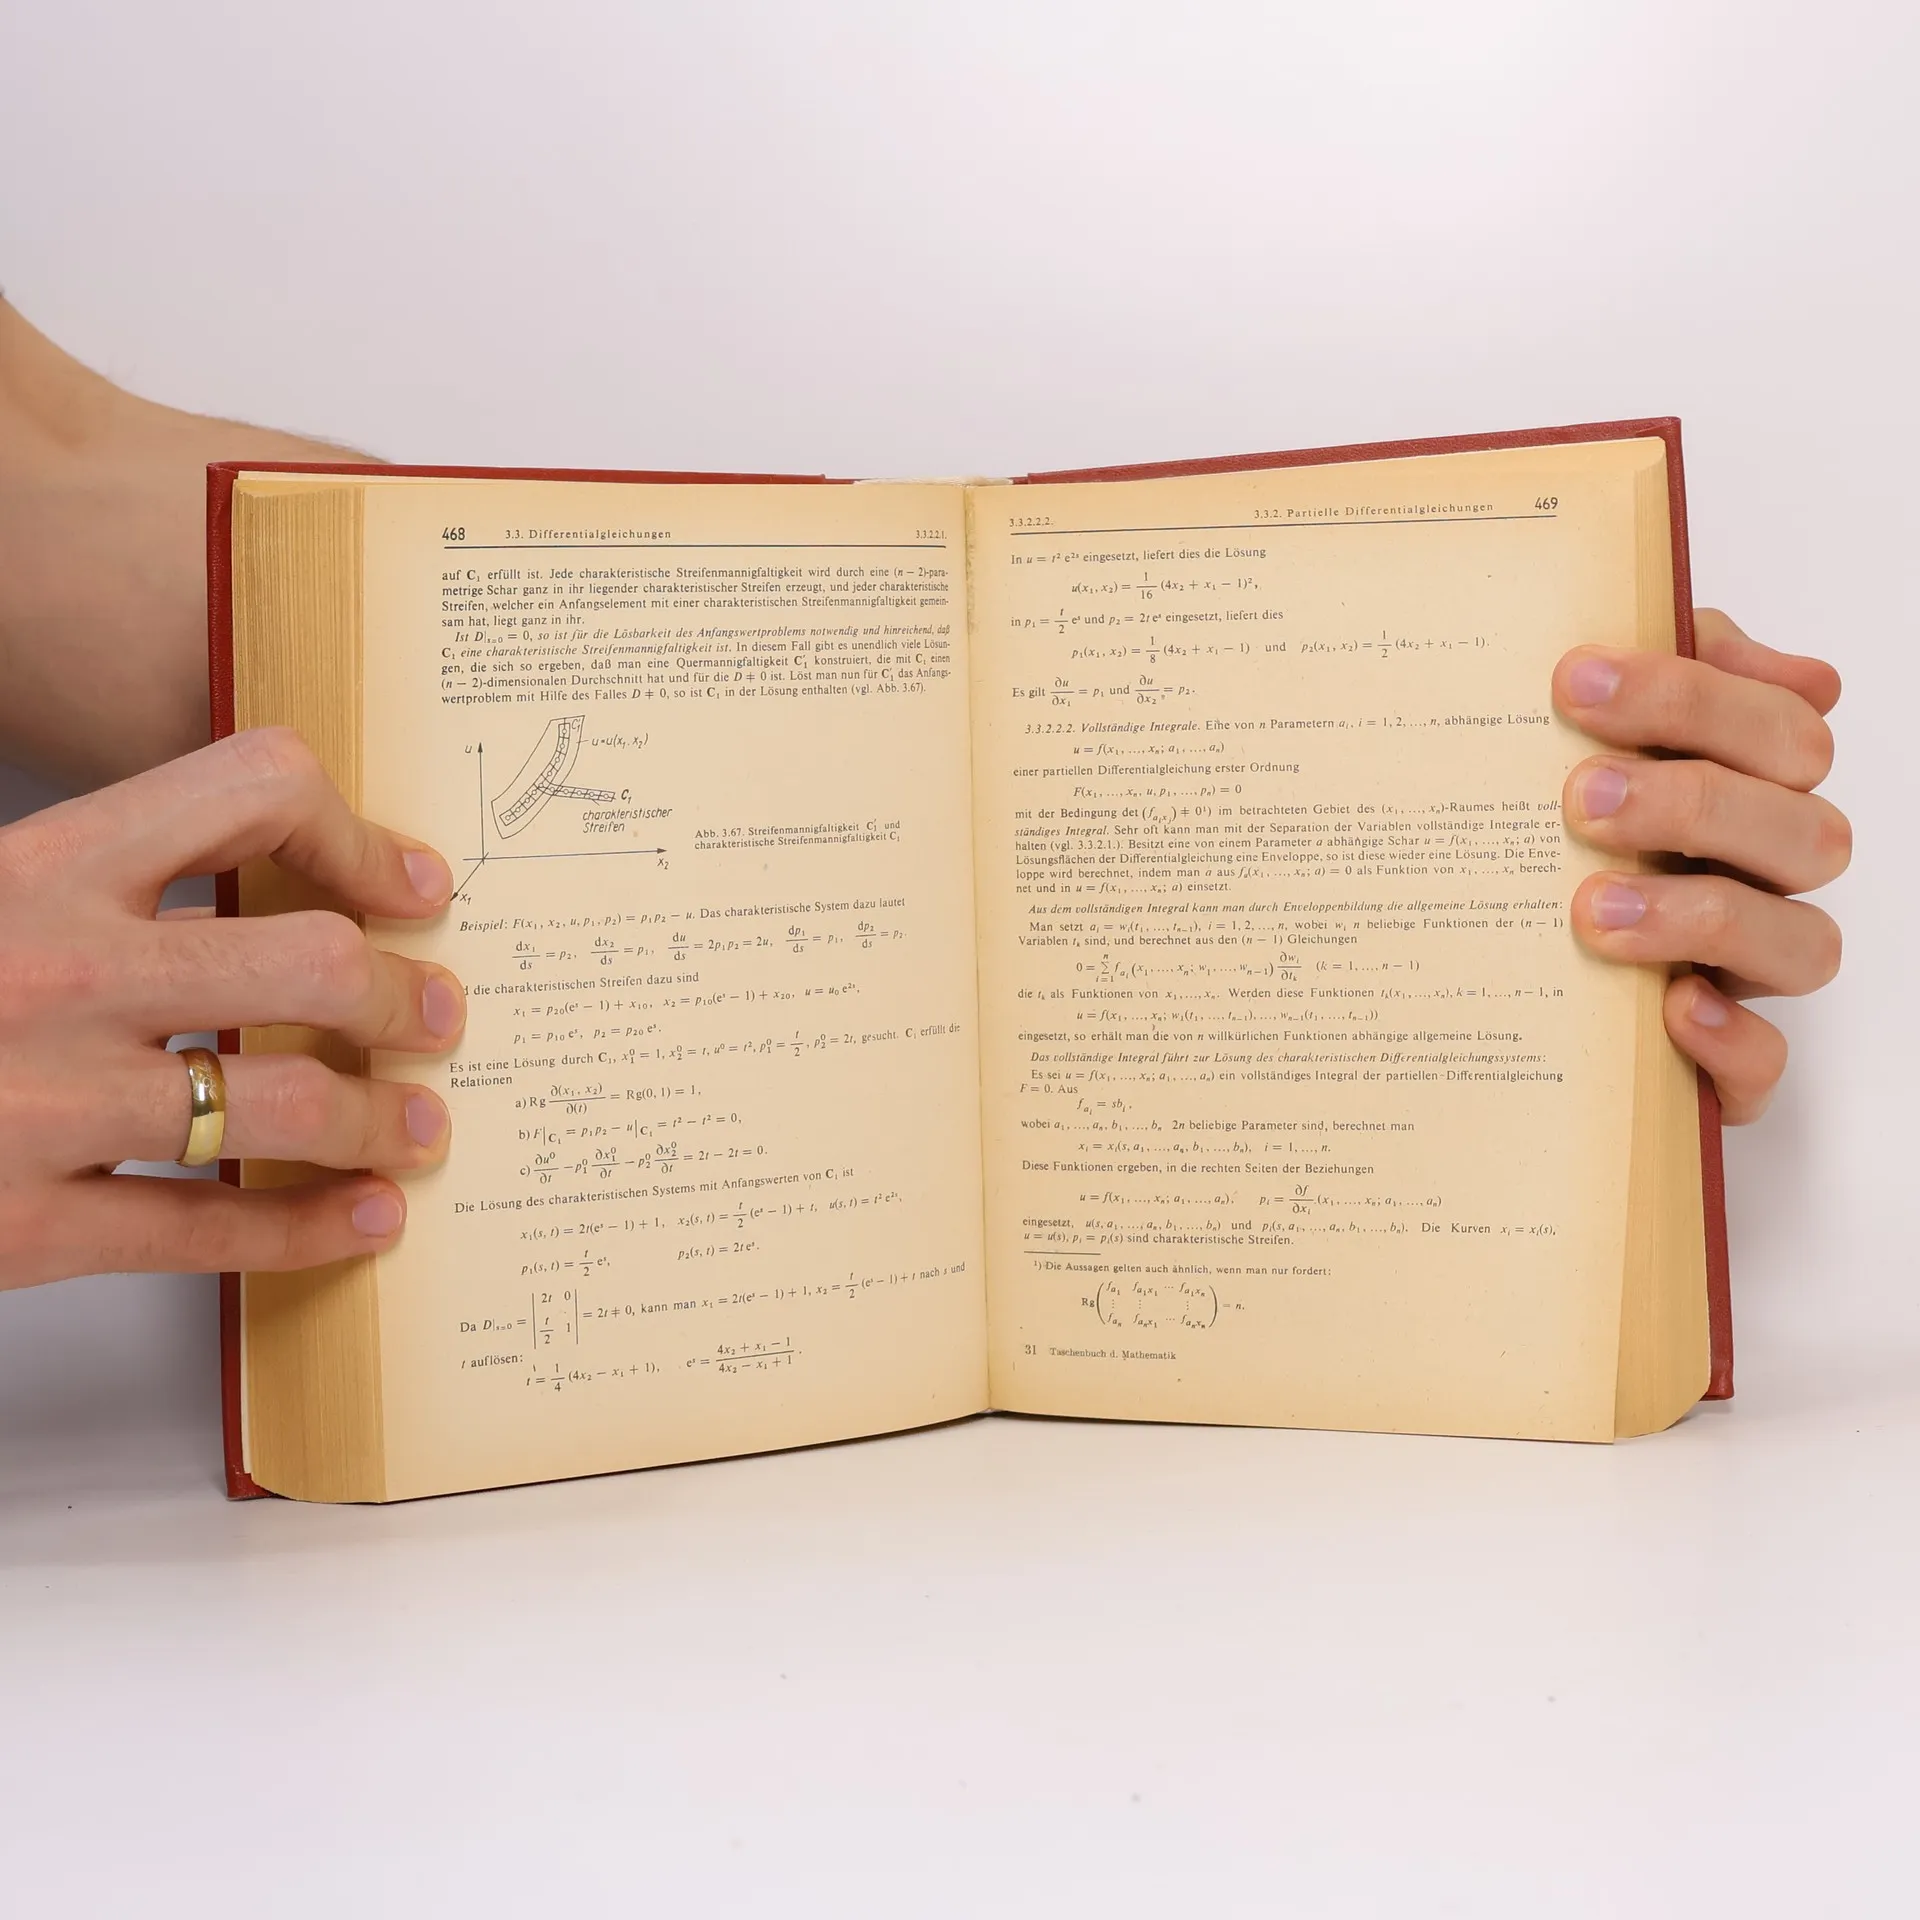 468 3.3. Differentialgleichungen 3.3.2.2.1.
auf C₁ erfüllt ist. Jede charakteristische Streifenmannigfaltigkeit wird durch eine (n − 2)-para-
metrige Schar ganz in ihr liegender charakteristischer Streifen erzeugt, und jeder charakteristische
Streifen, welcher ein Anfangselement mit einer charakteristischen Streifenmannigfaltigkeit gemein-
sam hat, liegt ganz in ihr.
Ist D|ₛ₌₀ = 0, so ist für die Lösbarkeit des Anfangswertproblems notwendig und hinreichend, daß
C₁ eine charakteristische Streifenmannigfaltigkeit ist. In diesem Fall gibt es unendlich viele Lösun-
gen, die sich so ergeben, daß man eine Quermannigfaltigkeit C₁′ konstruiert, die mit C₁ einen
(n − 2)-dimensionalen Durchschnitt hat und für die D ≠ 0 ist. Löst man nun für C₁′ das Anfangs-
wertproblem mit Hilfe des Falles D ≠ 0, so ist C₁ in der Lösung enthalten (vgl. Abb. 3.67).
C₁′
u
u=u(x₁, x₂)
C₁
charakteristischer
Streifen
x₂
x₁
Abb. 3.67. Streifenmannigfaltigkeit C₁′ und
charakteristische Streifenmannigfaltigkeit C₁
Beispiel: F(x₁, x₂, u, p₁, p₂) = p₁p₂ − u. Das charakteristische System dazu lautet
dx₁/ds = p₂, dx₂/ds = p₁, du/ds = 2p₁p₂ = 2u, dp₁/ds = p₁, dp₂/ds = p₂.
die charakteristischen Streifen dazu sind
x₁ = p₂₀(eˢ − 1) + x₁₀, x₂ = p₁₀(eˢ − 1) + x₂₀, u = u₀ e²ˢ,
p₁ = p₁₀ eˢ, p₂ = p₂₀ eˢ.
Es ist eine Lösung durch C₁, x₁⁰ = 1, x₂⁰ = t, u⁰ = t², p₁⁰ = t/2, p₂⁰ = 2t, gesucht. C₁ erfüllt die
Relationen
a) Rg ∂(x₁, x₂)/∂(t) = Rg(0, 1) = 1,
b) F|C₁ = p₁p₂ − u|C₁ = t² − t² = 0,
c) ∂u⁰/∂t − p₁⁰ ∂x₁⁰/∂t − p₂⁰ ∂x₂⁰/∂t = 2t − 2t = 0.
Die Lösung des charakteristischen Systems mit Anfangswerten von C₁ ist
x₁(s, t) = 2t(eˢ − 1) + 1, x₂(s, t) = t/2 (eˢ − 1) + t, u(s, t) = t² e²ˢ,
p₁(s, t) = t/2 eˢ, p₂(s, t) = 2t eˢ.
Da D|ₛ₌₀ = |2t 0; t/2 1| = 2t ≠ 0, kann man x₁ = 2t(eˢ − 1) + 1, x₂ = t/2 (eˢ − 1) + t nach s und
t auflösen:
t = 1/4 (4x₂ − x₁ + 1), eˢ = (4x₂ + x₁ − 1)/(4x₂ − x₁ + 1).
3.3.2.2.2. 3.3.2. Partielle Differentialgleichungen 469
In u = t² e²ˢ eingesetzt, liefert dies die Lösung
u(x₁, x₂) = 1/16 (4x₂ + x₁ − 1)²,
in p₁ = t/2 eˢ und p₂ = 2t eˢ eingesetzt, liefert dies
p₁(x₁, x₂) = 1/8 (4x₂ + x₁ − 1) und p₂(x₁, x₂) = 1/2 (4x₂ + x₁ − 1).
Es gilt ∂u/∂x₁ = p₁ und ∂u/∂x₂ = p₂.
3.3.2.2.2. Vollständige Integrale. Eine von n Parametern aᵢ, i = 1, 2, ..., n, abhängige Lösung
u = f(x₁, ..., xₙ; a₁, ..., aₙ)
einer partiellen Differentialgleichung erster Ordnung
F(x₁, ..., xₙ, u, p₁, ..., pₙ) = 0
mit der Bedingung det (f_{aᵢxⱼ}) ≠ 0¹) im betrachteten Gebiet des (x₁, ..., xₙ)-Raumes heißt voll-
ständiges Integral. Sehr oft kann man mit der Separation der Variablen vollständige Integrale er-
halten (vgl. 3.3.2.1.). Besitzt eine von einem Parameter a abhängige Schar u = f(x₁, ..., xₙ; a) von
Lösungsflächen der Differentialgleichung eine Enveloppe, so ist diese wieder eine Lösung. Die Enve-
loppe wird berechnet, indem man a aus fₐ(x₁, ..., xₙ; a) = 0 als Funktion von x₁, ..., xₙ berech-
net und in u = f(x₁, ..., xₙ; a) einsetzt.
Aus dem vollständigen Integral kann man durch Enveloppenbildung die allgemeine Lösung erhalten:
Man setzt aᵢ = wᵢ(t₁, ..., tₙ₋₁), i = 1, 2, ..., n, wobei wᵢ n beliebige Funktionen der (n − 1)
Variablen tₖ sind, und berechnet aus den (n − 1) Gleichungen
0 = Σⁿᵢ₌₁ f_{aᵢ}(x₁, ..., xₙ; w₁, ..., wₙ₋₁) ∂wᵢ/∂tₖ (k = 1, ..., n − 1)
die tₖ als Funktionen von x₁, ..., xₙ. Werden diese Funktionen tₖ(x₁, ..., xₙ), k = 1, ..., n − 1, in
u = f(x₁, ..., xₙ; w₁(t₁, ..., tₙ₋₁), ..., wₙ₋₁(t₁, ..., tₙ₋₁))
eingesetzt, so erhält man die von n willkürlichen Funktionen abhängige allgemeine Lösung.
Das vollständige Integral führt zur Lösung des charakteristischen Differentialgleichungssystems:
Es sei u = f(x₁, ..., xₙ; a₁, ..., aₙ) ein vollständiges Integral der partiellen Differentialgleichung
F = 0. Aus
f_{aᵢ} = sbᵢ,
wobei a₁, ..., aₙ, b₁, ..., bₙ 2n beliebige Parameter sind, berechnet man
xᵢ = xᵢ(s, a₁, ..., aₙ, b₁, ..., bₙ), i = 1, ..., n.
Diese Funktionen ergeben, in die rechten Seiten der Beziehungen
u = f(x₁, ..., xₙ; a₁, ..., aₙ), pᵢ = ∂f/∂xᵢ (x₁, ..., xₙ; a₁, ..., aₙ)
eingesetzt, u(s, a₁, ..., aₙ, b₁, ..., bₙ) und pᵢ(s, a₁, ..., aₙ, b₁, ..., bₙ). Die Kurven xᵢ = xᵢ(s),
u = u(s), pᵢ = pᵢ(s) sind charakteristische Streifen.
¹) Die Aussagen gelten auch ähnlich, wenn man nur fordert:
Rg (f_{a₁} f_{a₁x₁} ⋯ f_{a₁xₙ}; ⋮ ⋮ ⋮; f_{aₙ} f_{aₙx₁} ⋯ f_{aₙxₙ}) = n.
31 Taschenbuch d. Mathematik